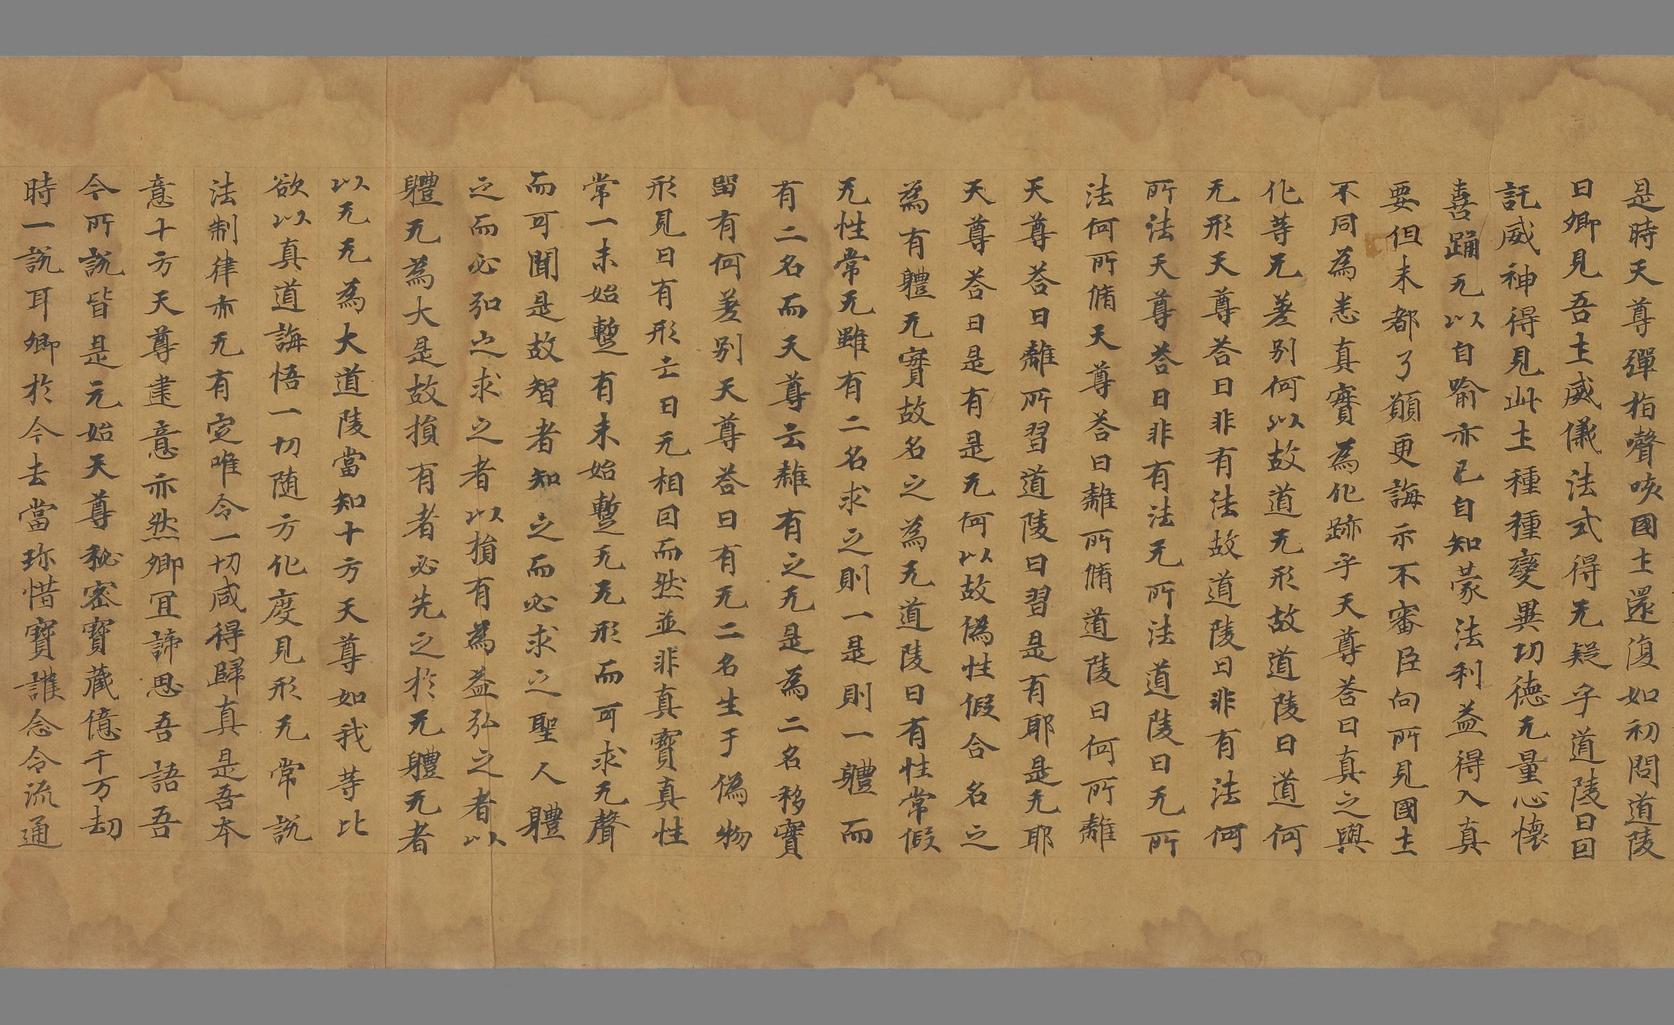 是時天尊彈指聲咳國土還復如初問道陵
曰卿見吾土威儀法式得无疑乎道陵曰因
託威神得見此土種種變異切德无量心懷
喜踊无以自喻亦已自知蒙法利益得入真
要但未都了願更誨示不審臣向所見國土
不同為悉真實為化跡乎天尊荅曰真之與
化等无差别何以故道无形故道陵曰道何
无形天尊荅曰非有法故道陵曰非有法何
所法天尊荅曰非有法无所法道陵曰无所
法何所脩天尊荅曰離所脩道陵曰何所離
天尊荅曰離所習道陵曰習是有耶是无耶
天尊荅曰是有是无何以故偽性假合名之
為有體无實故名之為无道陵曰有性常假
无性常无雖有二名求之則一是則一體而
有二名而天尊云離有之无是為二名移實
留有何差别天尊荅曰有无二名生于偽物
形見曰有形亡曰无相因而然並非真寶真性
常一未始蹔有未始蹔无无形而可求无聲
而可聞是故智者知之而必求之聖人體
之而必弘之求之者以損有為益弘之者以
體无為大是故損有者必先之於无體无者
以无无為大道陵當知十方天尊如我等比
欲以真道誨悟一切随方化度見形无常說
法制律亦无有定唯令一切咸得歸真是吾本
意十方天尊建意亦然卿冝諦思吾語吾
今所說皆是元始天尊秘密寶藏億千万劫
時一說耳卿於今去當珎惜寶護念令流通